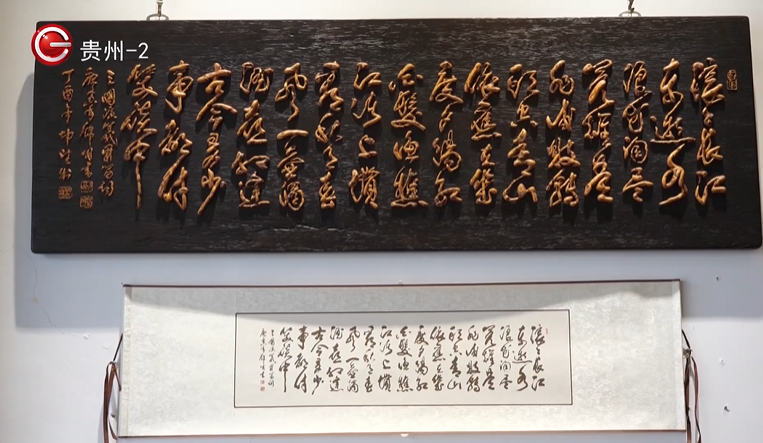 贵州-2
滚滚长江
东逝水
浪花淘尽
英雄是
非成败转
头空青山
依旧在几
度夕阳红
白发渔樵
江渚上惯
看秋月春
风一壶浊
酒喜相逢
古今多少
事都付
笑谈中
丁酉年
滚滚长江
东逝水
浪花淘尽
英雄是
非成败转
头空青山
依旧在几
度夕阳红
白发渔樵
江渚上惯
看秋月春
风一壶浊
酒喜相逢
古今多少
事都付
笑谈中